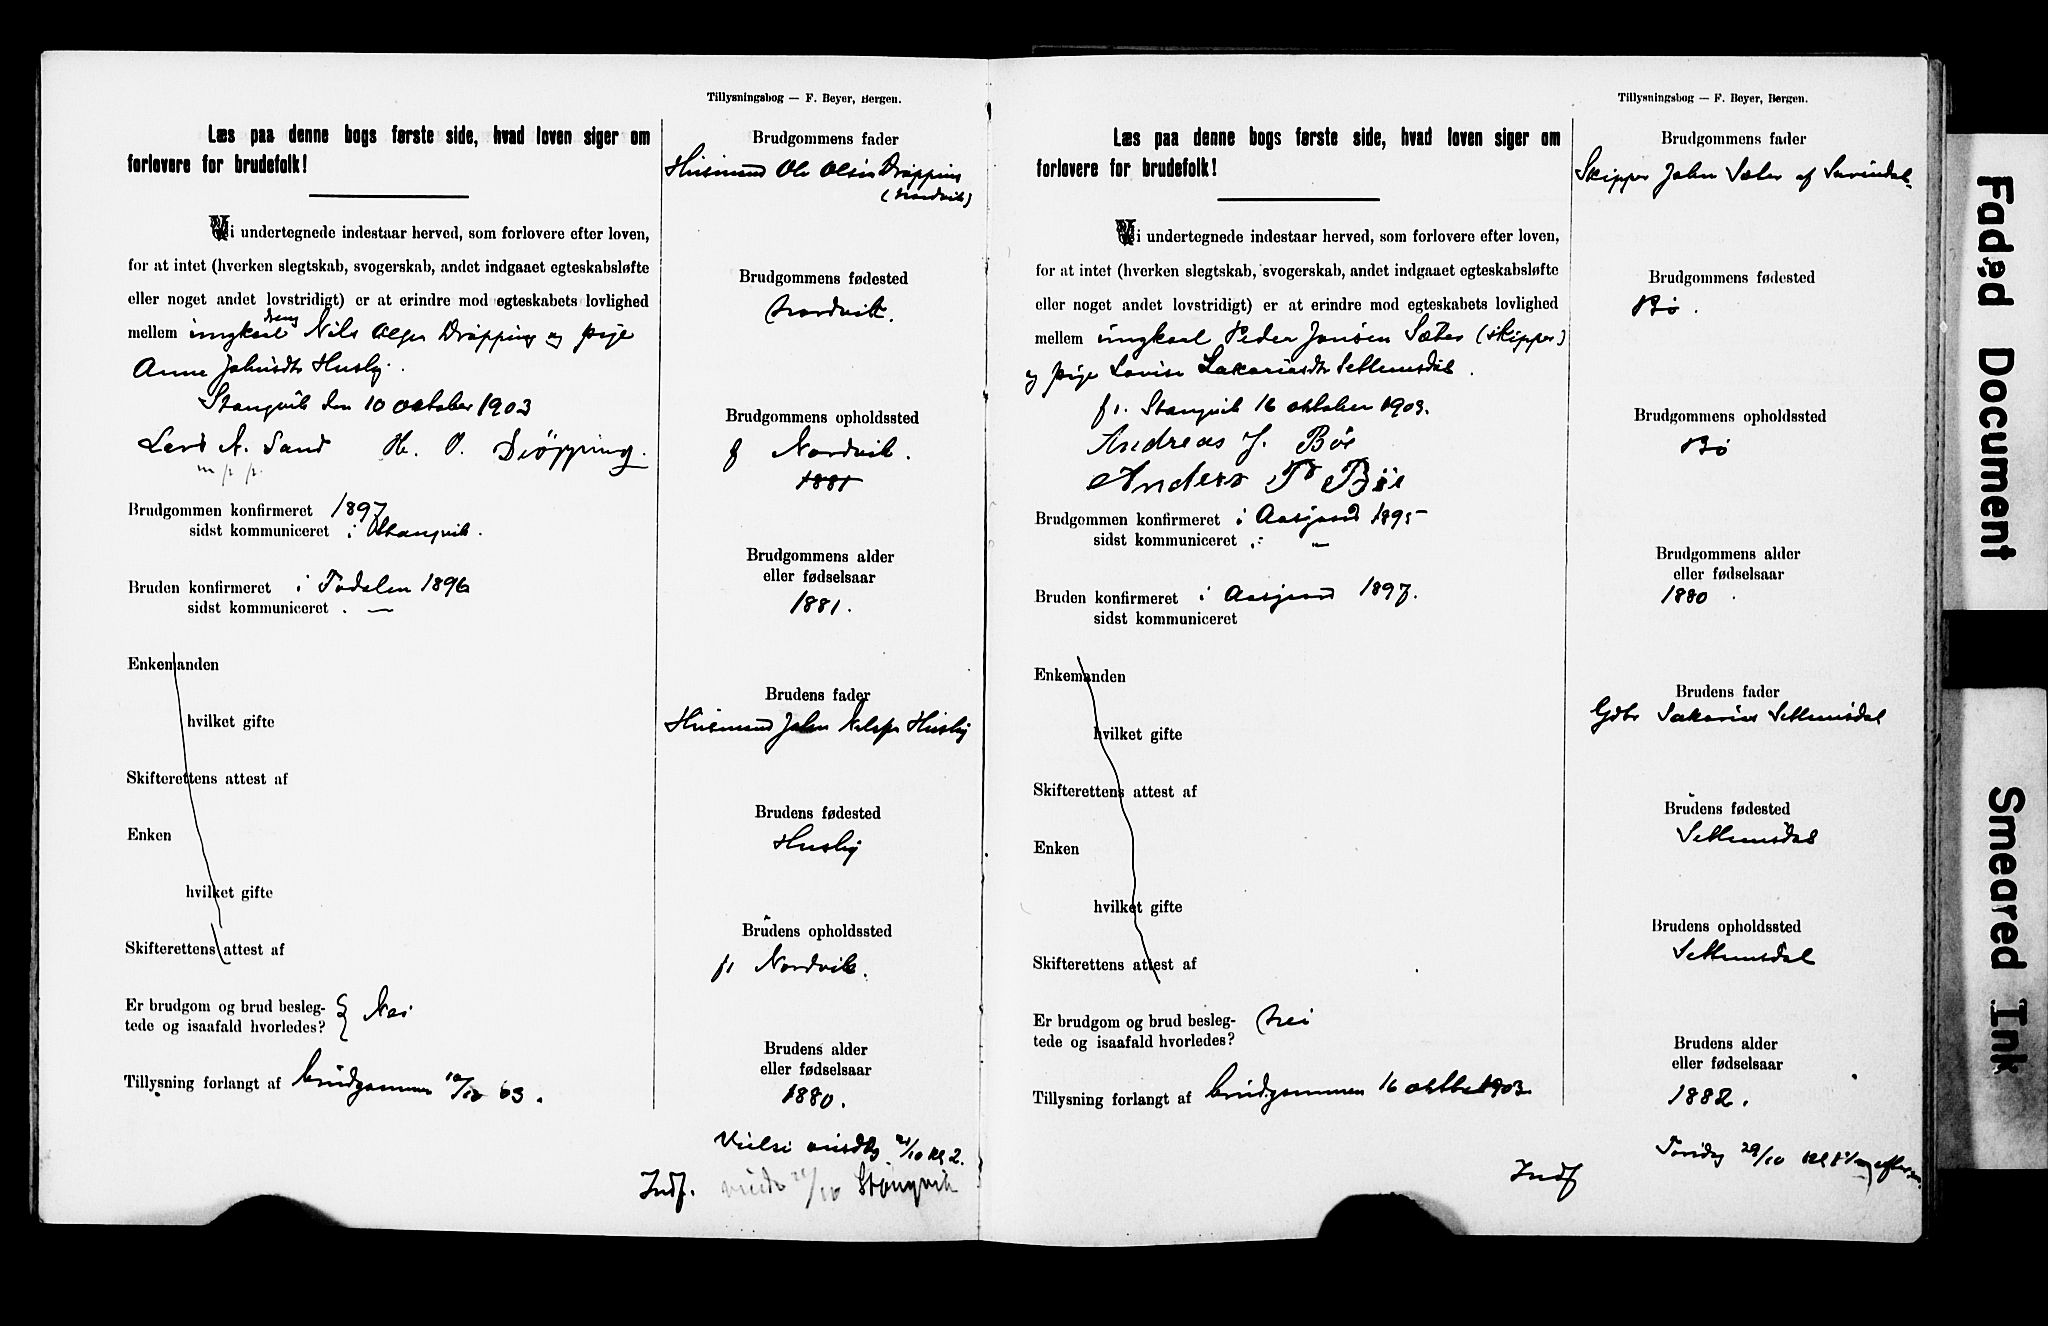 Tillysningsbog — F. Beyer, Bergen.
Læs paa denne bogs første side, hvad loven siger om
forlovere for brudefolk!
Vi undertegnede indestaar herved, som forlovere efter loven,
for at intet (hverken slegtskab, svogerskab, andet indgaaet egteskabsløfte
eller noget andet lovstridigt) er at erindre mod egteskabets lovlighed
mellem ungkarl dreng Nils Olsen Drøpping og pige
Anne Johnsdtr Husby.
Stangvik den 10 october 1903
Lars A. Sand H. O. Drøpping.
m p p.
Brudgommen konfirmeret 1897
sidst kommuniceret i Stangvik.
Bruden konfirmeret i Todalen 1896
sidst kommuniceret . —
Enkemanden
hvilket gifte
Skifterettens attest af
Enken
hvilket gifte
Skifterettens attest af
Er brudgom og brud besleg-
tede og isaafald hvorledes? } Nei
Tillysning forlangt af brudgommen 10/10 03.
Brudgommens fader
Husmand Ole Olsen Drøpping
(Nordvik)
Brudgommens fødested
Nordvik.
Brudgommens opholdssted
f Nordvik.
1881
Brudgommens alder
eller fødselsaar
1881.
Brudens fader
Husmand John Nilsen Husby
Brudens fødested
Husby
Brudens opholdssted
f. Nordvik.
Brudens alder
eller fødselsaar
1880.
Vielse onsdag 21/10 kl 2.
Indf. viede 21/10 Stangvik
Tillysningsbog — F. Beyer, Bergen.
Læs paa denne bogs første side, hvad loven siger om
forlovere for brudefolk!
Vi undertegnede indestaar herved, som forlovere efter loven,
for at intet (hverken slegtskab, svogerskab, andet indgaaet egteskabsløfte
eller noget andet lovstridigt) er at erindre mod egteskabets lovlighed
mellem ungkarl Peder Jonsen Sæter (skipper)
og pige Lovise Sakariasdtr Settemsdal.
f. Stangvik 16 oktober 1903.
Andreas J. Bøe
Anders P Bøe
Brudgommen konfirmeret i Aasgard 1895
sidst kommuniceret „ —
Bruden konfirmeret i Aasgard 1897.
sidst kommuniceret
Enkemanden
hvilket gifte
Skifterettens attest af
Enken
hvilket gifte
Skifterettens attest af
Er brudgom og brud besleg-
tede og isaafald hvorledes? Nei
Tillysning forlangt af brudgommen 16 oktbr 1903
Brudgommens fader
Skipper John Sæter af Surindal
Brudgommens fødested
Bø.
Brudgommens opholdssted
Bø
Brudgommens alder
eller fødselsaar
1880
Brudens fader
Gdbr Sakarias Settemsdal
Brudens fødested
Settemsdal
Brudens opholdssted
Settemsdal
Brudens alder
eller fødselsaar
1882.
Torsdag 29/10 kl
Indf
Faded Document
Smeared Ink